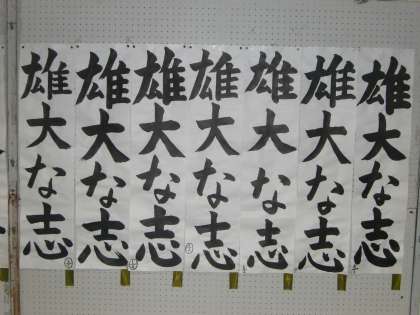 雄大な志
雄大な志
雄大な志
雄大な志
雄大な志
雄大な志
雄大な志